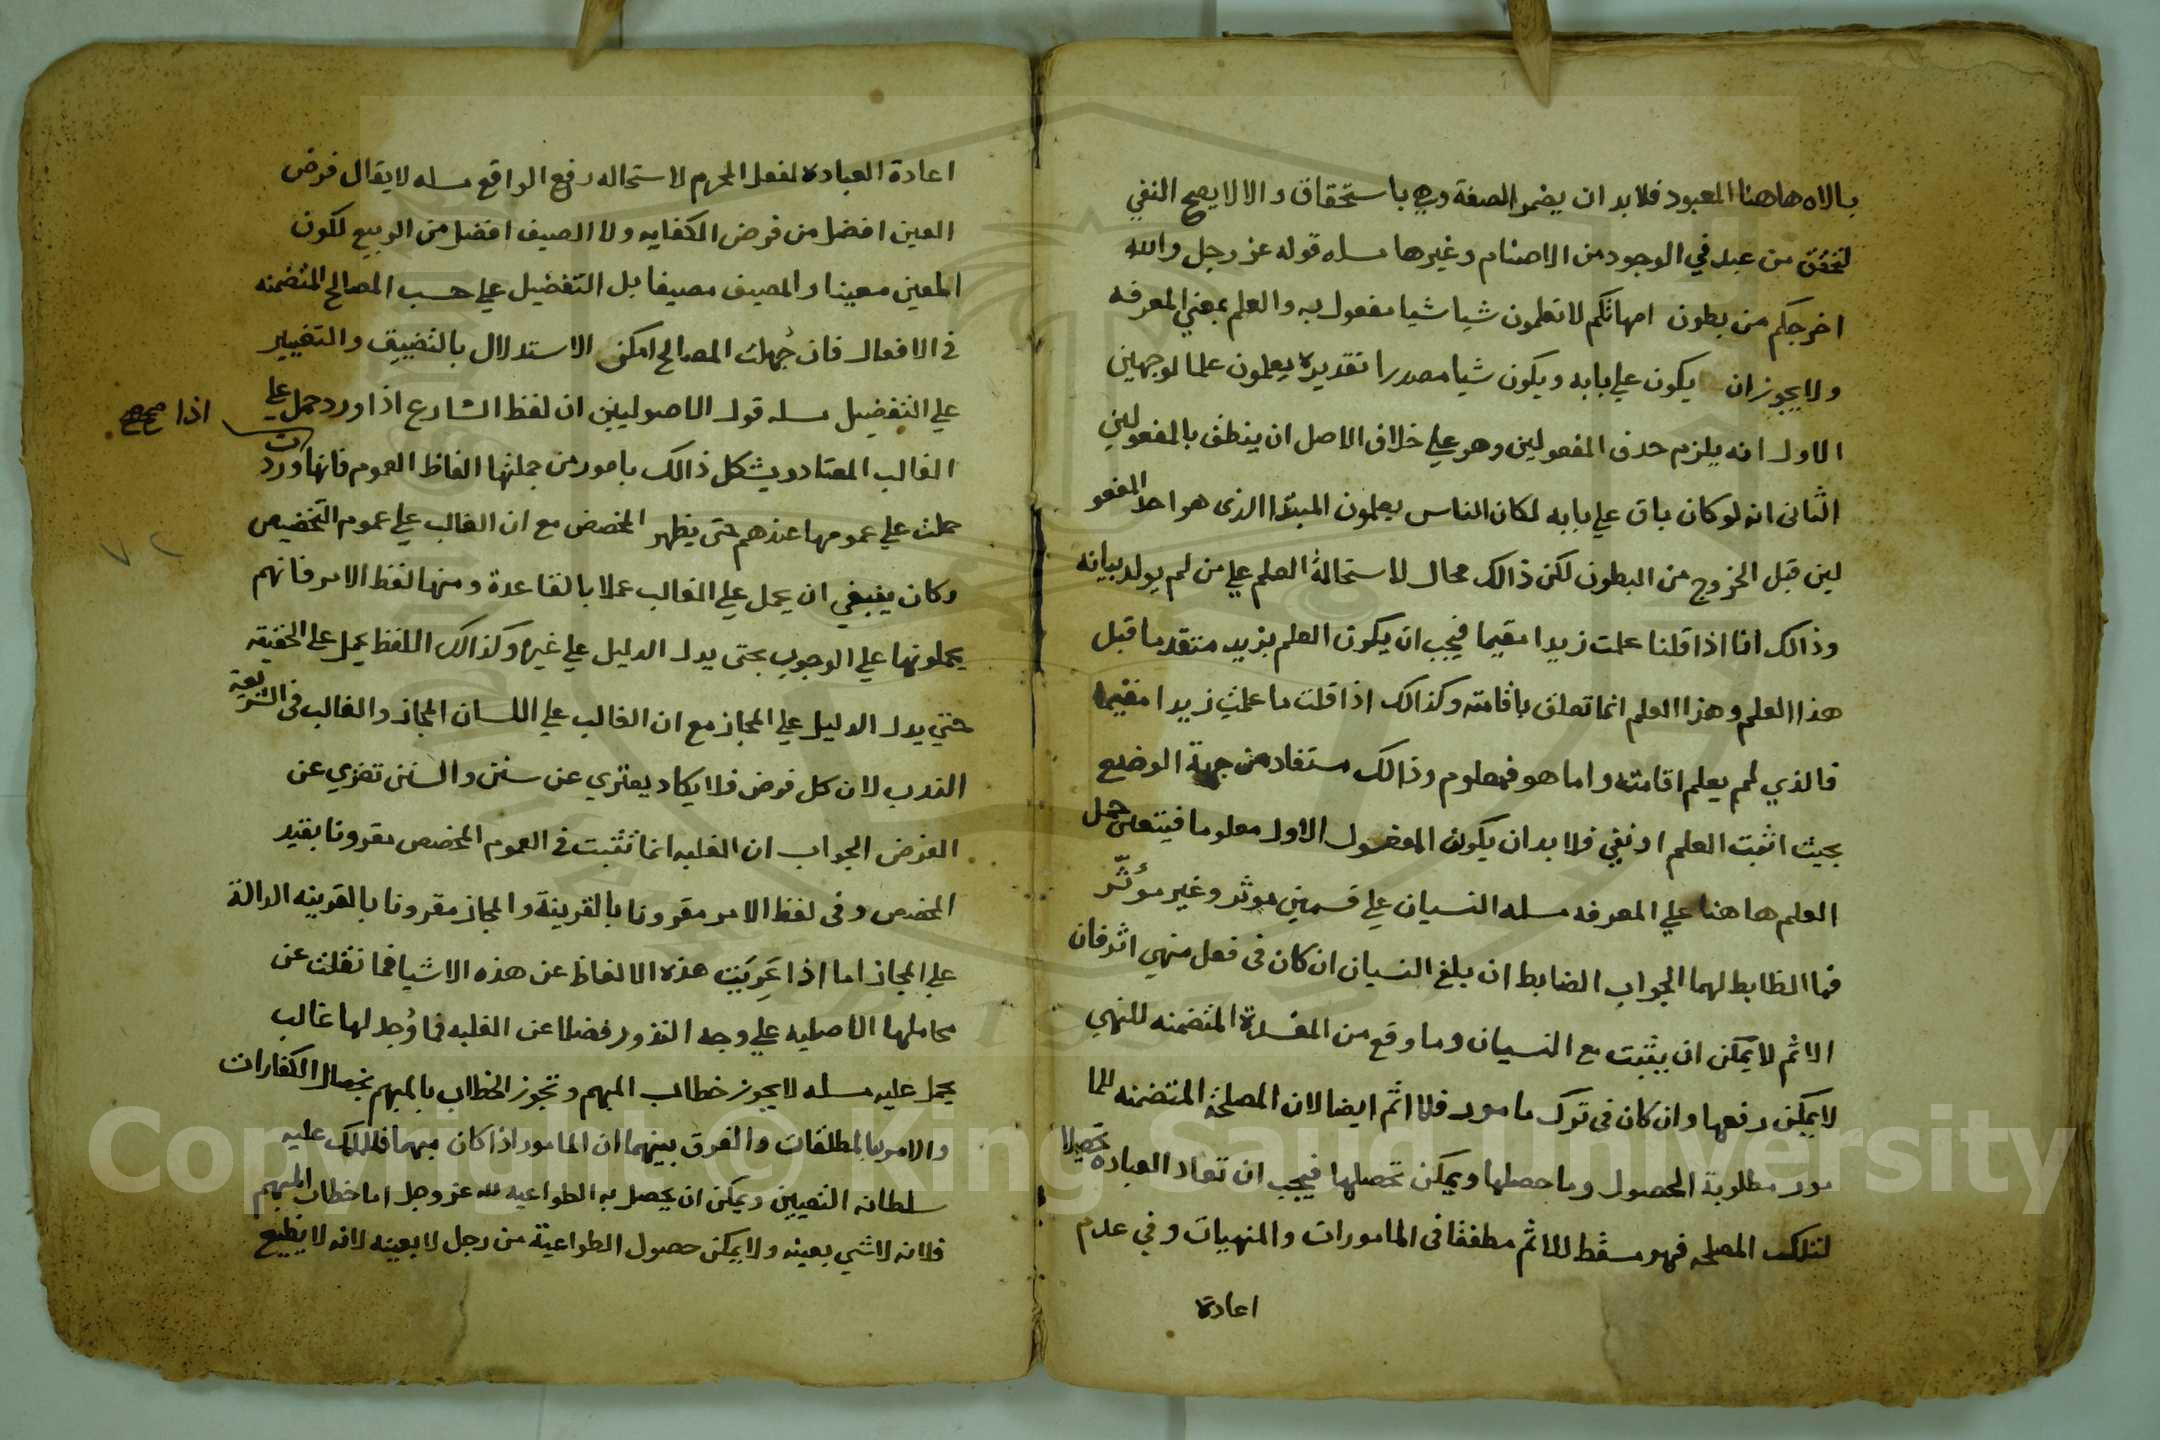 بالاه هاهنا المعبود فلا بد ان يضمر الصفة وهي باستحقاق والا لا يصح النفي
لتحقق من عبد في الوجود من الاصنام وغيرها مسله قوله عز وجل والله
اخرجكم من بطون امهاتكم لا تعلمون شيا شيا مفعول به والعلم بمعني المعرفه
ولا يجوز ان يكون علي بابه ويكون شيا مصدرا تقديره يعلمون علما لوجهين
الاول انه يلزم حذف المفعولين وهو علي خلاف الاصل ان ينطق بالمفعولين
الثاني انه لو كان باق علي بابه لكان الناس يعلمون المبتدا الذي هو احد المفعو
لين قبل الخروج من البطون لكن ذالك محال لاستحالة العلم علي من لم يولد بيانه
وذالك انا اذا قلنا علمت زيدا مقيما فيجب ان يكون العلم بزيد متقدما قبل
هذا العلم وهذا العلم انما تعلق باقامته وكذالك اذا قلت ما علمت زيدا مقيما
فالذي لم يعلم اقامته واما هو فمعلوم وذالك مستفاد من جهة الوضع
بحيث اثبت العلم او نفي فلا بد ان يكون المفعول الاول معلوما فيتعين حمل
العلم هاهنا علي المعرفه مسله النسيان علي قسمين موثر وغير مؤثّر
فما الظابط لهما الجواب الضابط ان يلغ النسيان ان كان في فعل منهي اثر فان
الاثم لا يمكن ان يثبت مع النسيان وما وقع من المفسدة المتضمنه للنهي
لا يمكن رفعها وان كان في ترك مامور فلا اثم ايضا لان المصلحة المتضمنه للما
مور مطلوبة الحصول وما حصلها ويمكن تحصلها فيجب ان تعاد العبادة تحصيلا
لتلك المصلحه فهو مسقط للاثم مطلقا في المامورات والمنهيات وفي عدم
اعادة
اعادة العباده لفعل المحرم لاستحاله رفع الواقع مسله لا يقال فرض
العين افضل من فرض الكفايه ولا الصيف افضل من الربيع لكون
المعين معينا والمصيف مصيفا بل التفضيل علي حسب المصالح المتضمنه
في الافعال فان جُهلت المصالح امكن الاستدلال بالتضييق والتغيير
علي التفضيل مسله قول الاصوليين ان لفظ الشارع اذا ورد حمل علي
اذا صح
الغالب المعتاد ويشكل ذالك بامور من جملتها الفاظ العموم فانها وردت
حملت علي عمومها عندهم حتي يظهر المخصص مع ان الغالب علي عموم التخصيص
وكان ينبغي ان يحمل علي الغالب عملا بالقاعدة ومنها لفظ الامر فانهم
يحملونها علي الوجوب حتى يدل الدليل علي غيره وكذالك اللفظ يحمل علي الحقيقه
حتي يدل الدليل علي المجاز مع ان الغالب علي اللسان المجاز والغالب في الشريعة
الندب لان كل فرض فلا يكاد يعتري عن سنن والسنن تعري عن
الفرض الجواب ان الغلبه انما تثبت في العموم المخصص مقرونا بقيد
المخصص وفي لفظ الامر مقرونا بالقرينة والمجاز مقرونا بالقرينه الدالة
علي المجاز اما اذا عَرِيَت هذه الالفاظ عن هذه الاشيا فما نقلت عن
محاملها الاصليه علي وجه الندور فضلا عن الغلبه فما وُجد لها غالب
يحمل عليه مسله لا يجوز خطاب المبهم وتجوز الخطاب بالمبهم بخصال الكفارات
والامر بالمطلقات والفرق بينهما ان المامور اذا كان مبهما فللملك عليه
سلطانه التعيين ويمكن ان يحصل به الطواعيه لله عز وجل اما خطاب المبهم
فلانه لا شي بعينه ولا يمكن حصول الطواعية من رجل لا بعينه لانه لا يطيع
Copyright © King Saud University